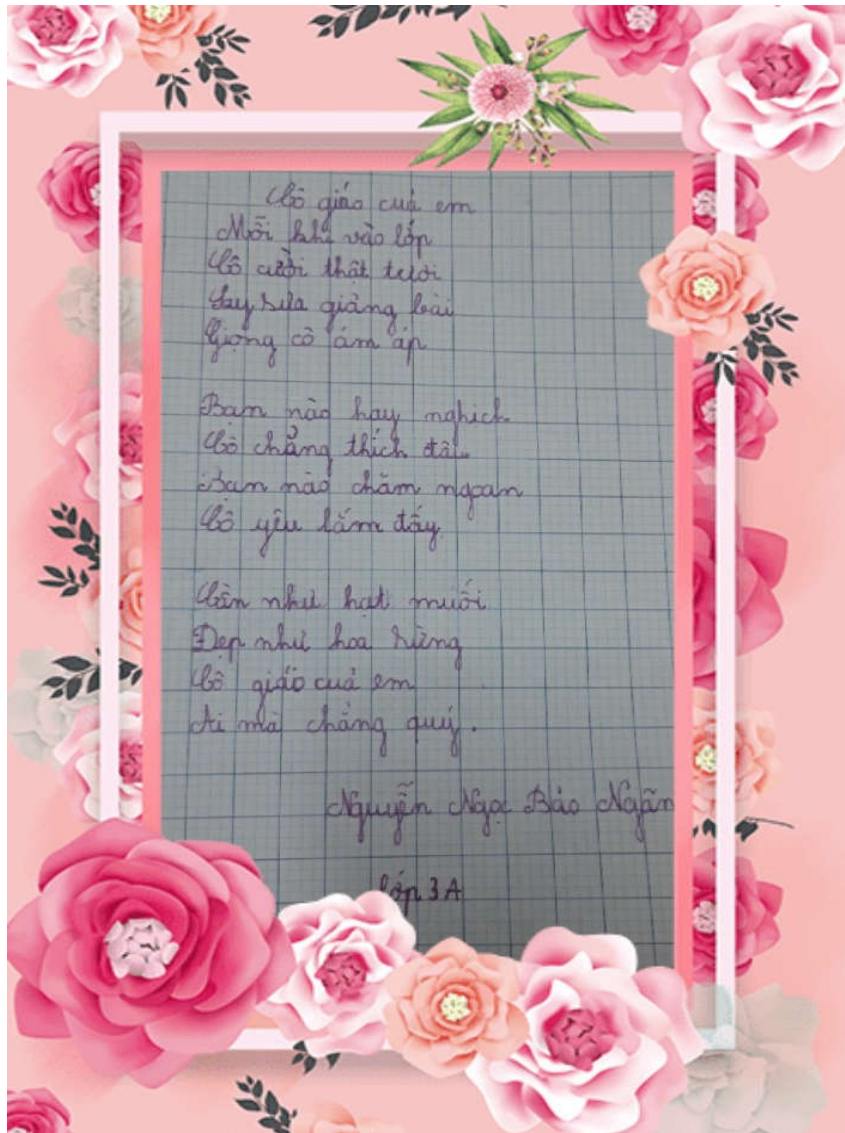 Cô giáo cuả em
Mỗi khi vào lớp
Cô cười thật tươi
Say sưa giảng bài
Giọng cô ấm áp
Bạn nào hay nghịch
Cô chẳng thích đâu
Bạn nào chăm ngoan
Cô yêu lắm đấy
Cần như hạt muối
Đẹp như hoa rừng
Cô giáo cuả em
Ai mà chẳng quý.
Nguyễn Ngọc Bảo Ngân
lớp 3A